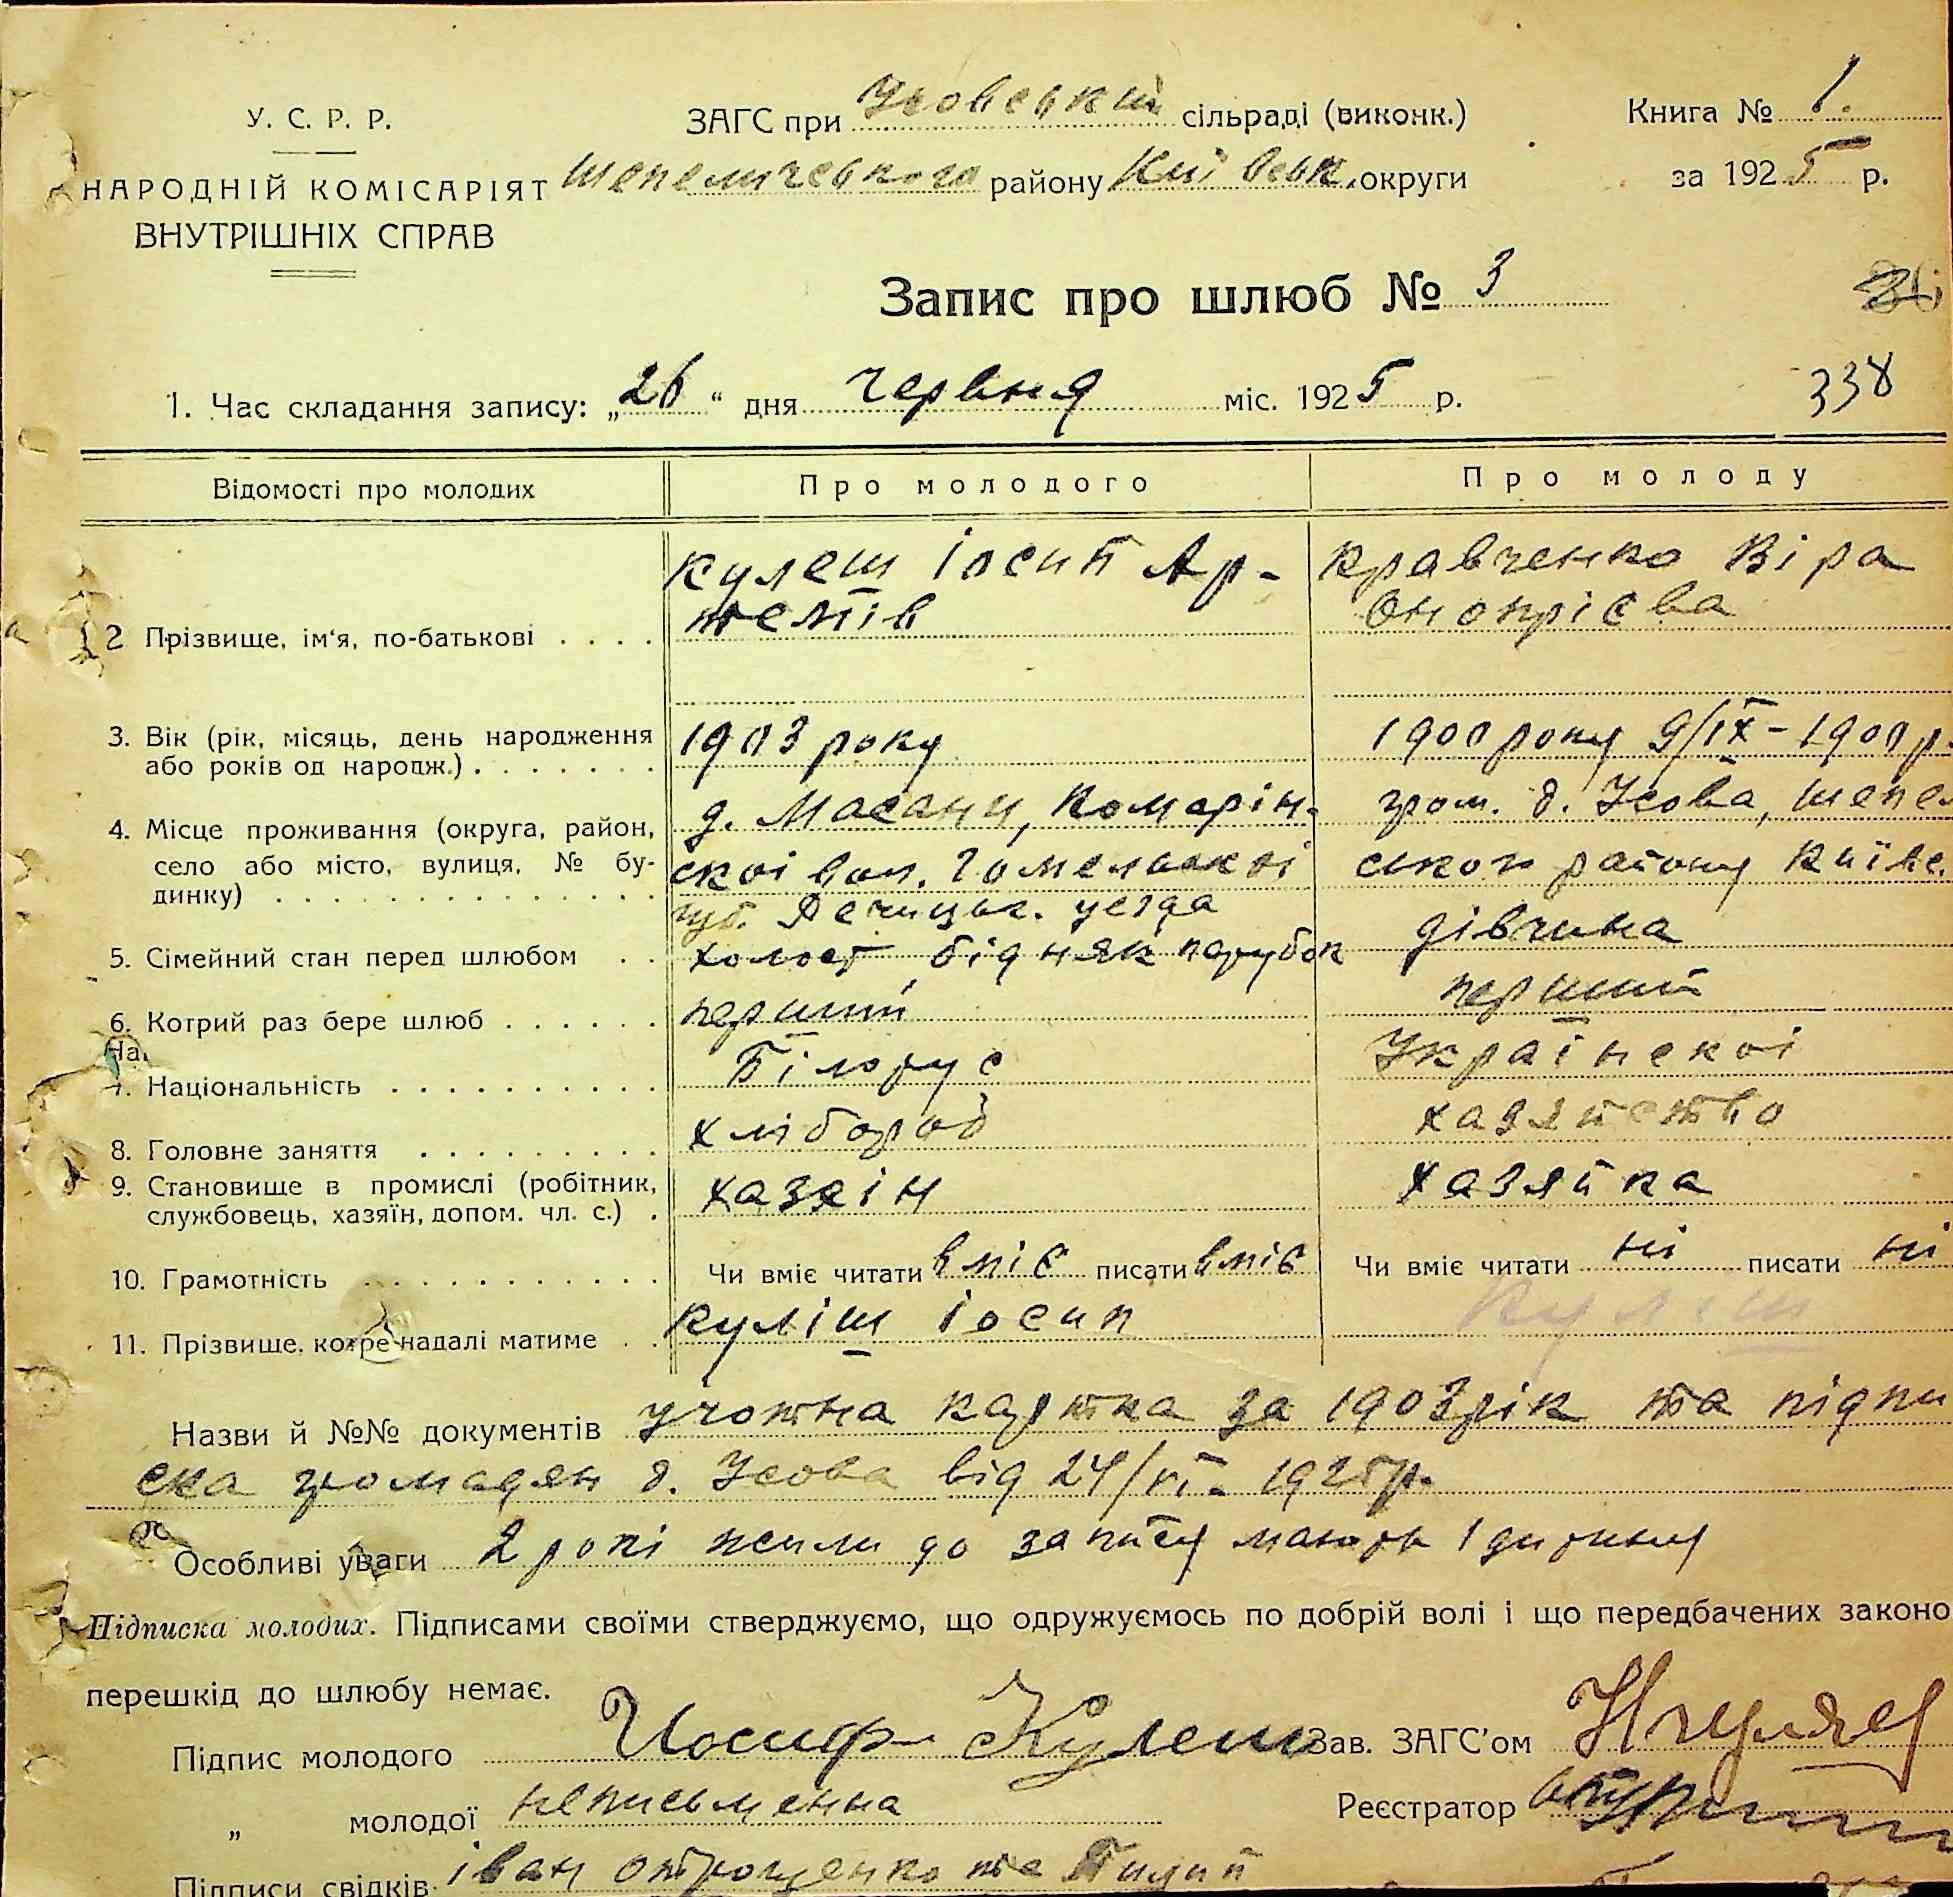 У. С. Р. Р.
НАРОДНІЙ КОМІСАРІЯТ
ВНУТРІШНІХ СПРАВ
ЗАГС при Усовській сільраді (виконк.)
Шепеличського району Київськ. округи
Книга № 1.
за 1925 р.
Запис про шлюб № 3
338
1. Час складання запису: „26“ дня червня міс. 1925 р.
Відомості про молодих Про молодого Про молоду
2 Прізвище, ім‘я, по-батькові
Кулеш Іосип Ар-
темів
Кравченко Віра
Онопрієва
3. Вік (рік, місяць, день народження
або років од народж.)
1903 року
1900 року 9/ІХ - 1900 р.
4. Місце проживання (округа, район,
село або місто, вулиця, № бу-
динку)
д. Масани, Комарін-
скоі вол. Гомельскоі
губ. Речицьк. уезда
гром. д. Усова, Шепел
ського району Київс.
5. Сімейний стан перед шлюбом холост бідняк парубок дівчина
6. Котрий раз бере шлюб перший перший
7. Національність Білорус Українскоі
8. Головне заняття хлібороб хазяйство
9. Становище в промислі (робітник,
службовець, хазяїн, допом. чл. с.)
хазяін хазяйка
10. Грамотність Чи вміє читати вміє писати вміє Чи вміє читати ні писати ні
11. Прізвище, котре надалі матиме Куліш Іосип Кулеш
Назви й №№ документів учотна картка за 1903 рік та підпи
ска громадян д. Усова від 24/VI - 1925 р.
Особливі уваги 2 рокі жили до запису мають 1 дитину
Підписка молодих. Підписами своїми стверджуємо, що одружуємось по добрій волі і що передбачених законо
перешкід до шлюбу немає.
Підпис молодого Иосиф Кулеш Зав. ЗАГС'ом
„ молодої неписьменна Реєстратор
Підписи свідків Іван Отрощенко та Пилип